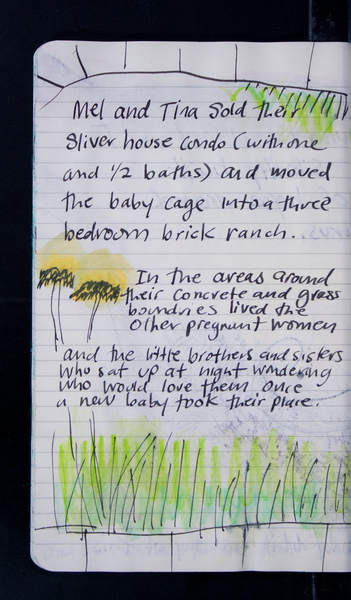 Mel and Tina sold their
Sliver house condo (with one
and 1/2 baths) and moved
the baby cage into a three
bedroom brick ranch.
In the areas around
their concrete and grass
boundries lived the
other pregnant women
and the little brothers and sisters
who sat up at night wondering
who would love them once
a new baby took their place.